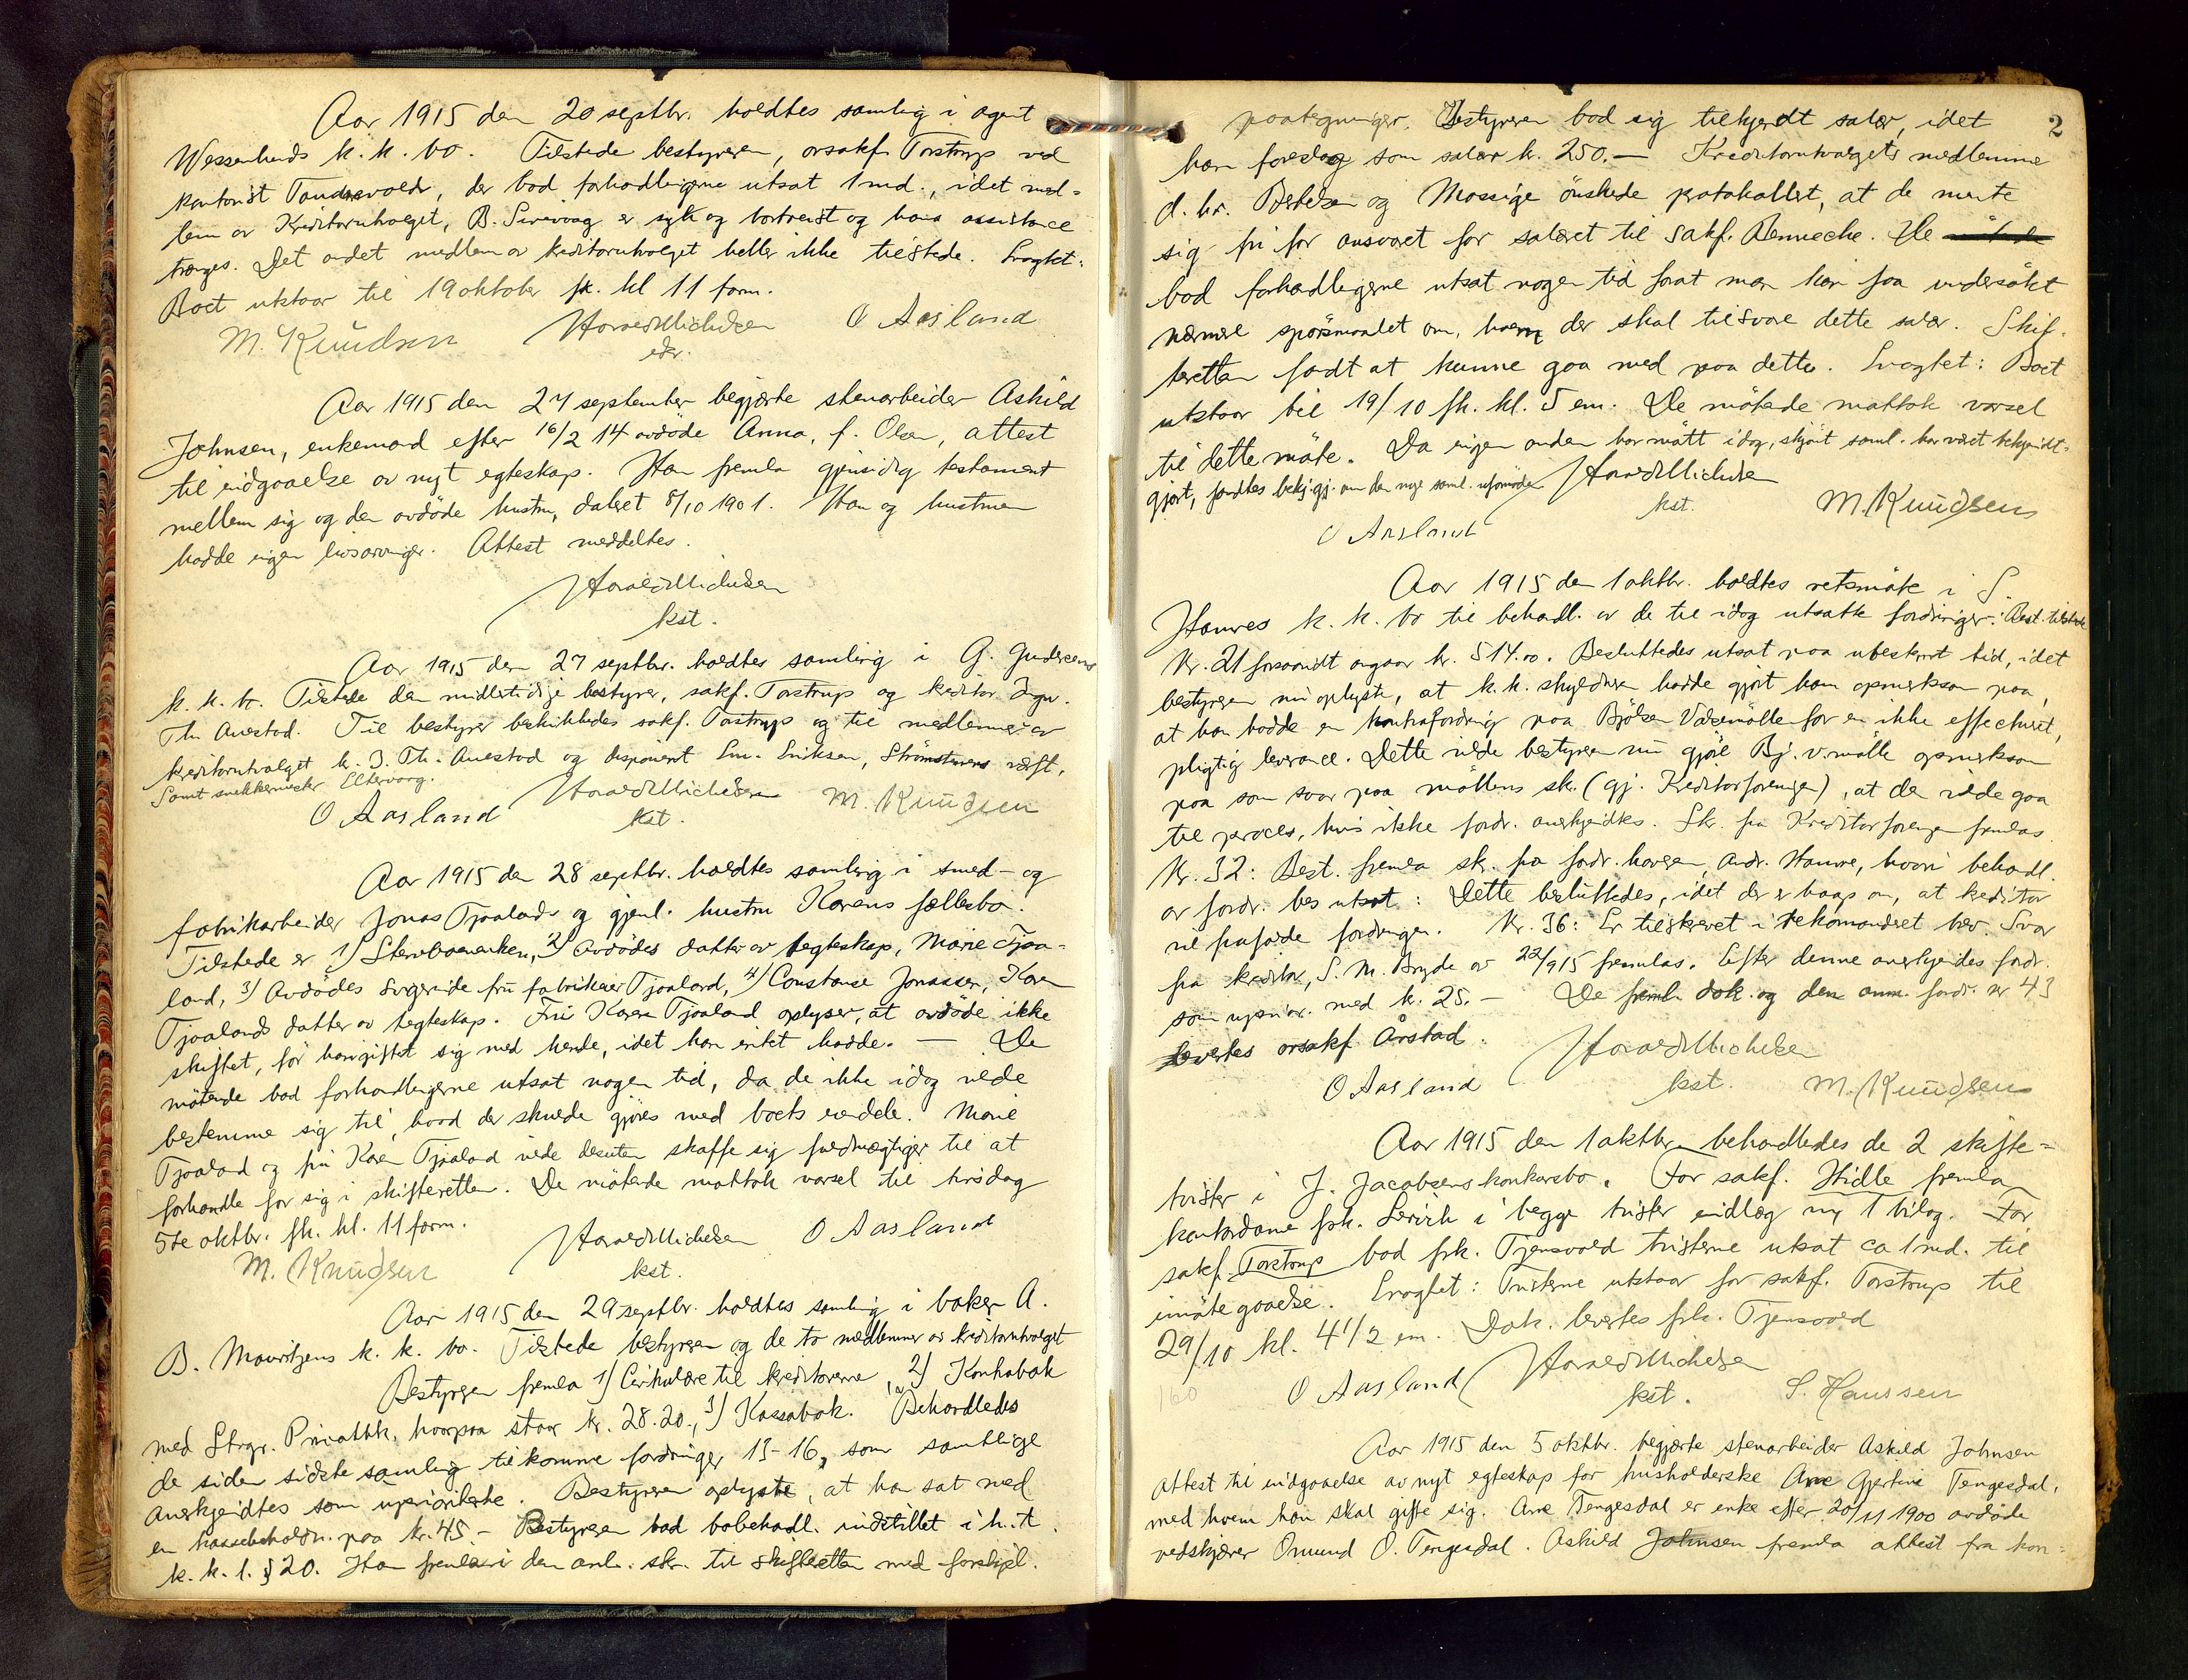 Aar 1915 den 20 septbr. holdtes samling i agent
Wessenbergs k. k. bo. Tilstede bestyreren, orsakf. Torstrup ved
kontorist Tandsevold, der bad forhandlingerne utsat 1 md., idet med-
lem av Kreditorutvalget, B. Sirevaag er syk og bortreist og hans assistance
trænges. Det andet medlem av kreditorutvalget heller ikke tilstede. Eragtet:
Boet utstaar til 19 oktober fk. kl 11 form.
M. Knudsen Harald Michelsen O Aasland
edr.
Aar 1915 den 27 september begjærte stenarbeider Askild
Johnsen, enkemand efter 16/2 14 avdöde Anna, f. Olsen, attest
til indgaaelse av nyt egteskap. Han fremla gjensidig testament
mellem sig og den avdöde hustru, dateret 8/10 1901. Han og hustruen
hadde ingen livsarvinger. Attest meddeltes.
Harald Michelsen
kst.
Aar 1915 den 27 septbr. holdtes samling i G. Gundersens
k. k. bo. Tilstede den midlertidige bestyrer, sakf. Torstrup og kreditor Ingv.
Th. Auestad. Til bestyrer beskikkedes sakf. Torstrup og til medlemmer av
kreditorutvalget h. I. Th. Auestad og disponent Em. Eriksen, Strömstens verft,
Samt snekkermester Eltervaag.
O Aasland Harald Michelsen M. Knudsen
kst.
Aar 1915 den 28 septbr. holdtes samling i smed- og
fabrikarbeider Jonas Tjaalands og gjenl. hustru Karens fællesbo.
Tilstede er 1) Stervboenken, 2) Avdödes datter av 1 egteskap, Marie Tjaa-
land, 3) Avdödes svigerinde fru fabrikeier Tjaaland, 4) Constanse Jonassen, Karen
Tjaalands datter av 1 egteskap. Fru Karen Tjaaland oplyser, at avdöde ikke
skiftet, för han giftet sig med hende, idet han intet hadde. — De
mötende bad forhandlingerne utsat nogen tid, da de ikke idag vilde
bestemme sig til, hvad der skulde gjöres med boets eiendele. Marie
Tjaaland og fru Karen Tjaaland vilde desuten skaffe sig fuldmægtiger til at
forhandle for sig i skifteretten. De mötende mottok varsel til tirsdag
5te oktbr. fk. kl. 11 form.
M. Knudsen Harald Michelsen O Aasland
kst.
Aar 1915 den 29 septbr. holdtes samling i baker A.
B. Mauritzens k. k. bo. Tilstede bestyreren og de to medlemmer av kreditorutvalget
Bestyreren fremla 1) Cirkulære til kreditorerne, 2) Kontrabok
med Strgr. Privatbk. hvorpaa staar kr. 28.20., 3) Kassabok. Behandledes
de siden sidste samling tilkomne fordringer 13-16, som samtlige
anerkjendtes som uprioriterte. Bestyreren oplyste, at han sat med
en kassebeholdn. paa kr. 45.- Bestyreren bad bobehandl. indstillet i h.t.
k. k. l. § 20. Han fremla i den anl. skr. til skifteretten med forskjel.
2
paategninger. Bestyreren bad sig tilkjendt salær, idet
han foreslog som salær kr. 250.— Kreditorutvalgets medlemmer
d. hr. Bertelsen og Mossige önskede protokollert, at de mente
sig fri for ansvaret for salæret til sakf. Bennecke. De
bad forhandlingerne utsat nogen tid forat man kan faa undersökt
nærmere spörsmaalet om, hvem der skal tilsvare dette salær. Skif-
teretten fandt at kunne gaa med paa dette. Eragtet: Boet
utstaar til 19/10 fk. kl. 5 em. De mötende mottok varsel
til dette möte. Da ingen anden har mött idag, skjönt saml. har været bekjendt-
gjort, fandtes bekj.gj. om den nye saml. ufornöden Harald Michelsen
kst. M. Knudsen
O Aasland
Aar 1915 den 1 oktbr. holdtes retsmöte i S.
Hauves k. k. bo til behandl. av de til idag utsatte fordringer. Best. tilstede
Nr. 21 forsaavidt angaar kr. 514.00. Besluttedes utsat paa ubestemt tid, idet
bestyreren nu oplyste, at k. k. skyldneren hadde gjort ham opmerksom paa,
at han hadde en kontrafordring paa Bjölsen Valsemölle for en ikke effectueret,
pligtig leverance. Dette vilde bestyreren nu gjöre Bj. v.mölle opmerksom
paa som svar paa möllens skr. (gj. Kreditorforeningen), at den vilde gaa
til proces, hvis ikke fordr. anerkjendtes. Skr. fra Kreditorforeningen fremlas
Nr. 32: Best. fremla skr. fra fordr.haveren, Andr. Hauve, hvori behandl.
av fordr. bes utsat: Dette besluttedes, idet der er haap om, at kreditor
vil frafalde fordringen. Nr. 36: Er tilskrevet i rekomanderet brev. Svar
fra kreditor, S. M. Bryde av 22/9 15 fremlas. Efter denne anerkjendes fordr.
som uprior. med kr. 25.— De freml. dok. og den anm. fordr. nr 43
levertes orsakf. Årstad.
Harald Michelsen
O Aasland kst. M. Knudsen
Aar 1915 den 1 oktbr. behandledes de 2 skifte-
tvister i J. Jacobsens konkursbo. For sakf. Hidle fremla
kontordame frk. Lervik i begge tvister indlæg m/ 1 bilag. For
sakf. Torstrup bad frk. Tjensvold tvisterne utsat ca 1 md. til
imötegaaelse. Eragtet: Tvisterne utstaar for sakf. Torstrup til
29/10 kl. 4 1/2 em. Dok. levertes frk. Tjensvold
160 O Aasland Harald Michelsen
kst. S. Hanssen
Aar 1915 den 5 oktbr. begjærte stenarbeider Askild Johnsen
attest til indgaaelse av nyt egteskap for husholderske Ane Gjertine Tengesdal,
med hvem han skal gifte sig. Ane Tengesdal er enke efter 20/11 1900 avdöde
vedskjærer Omund O. Tengesdal. Askild Johnsen fremla attest fra kon-